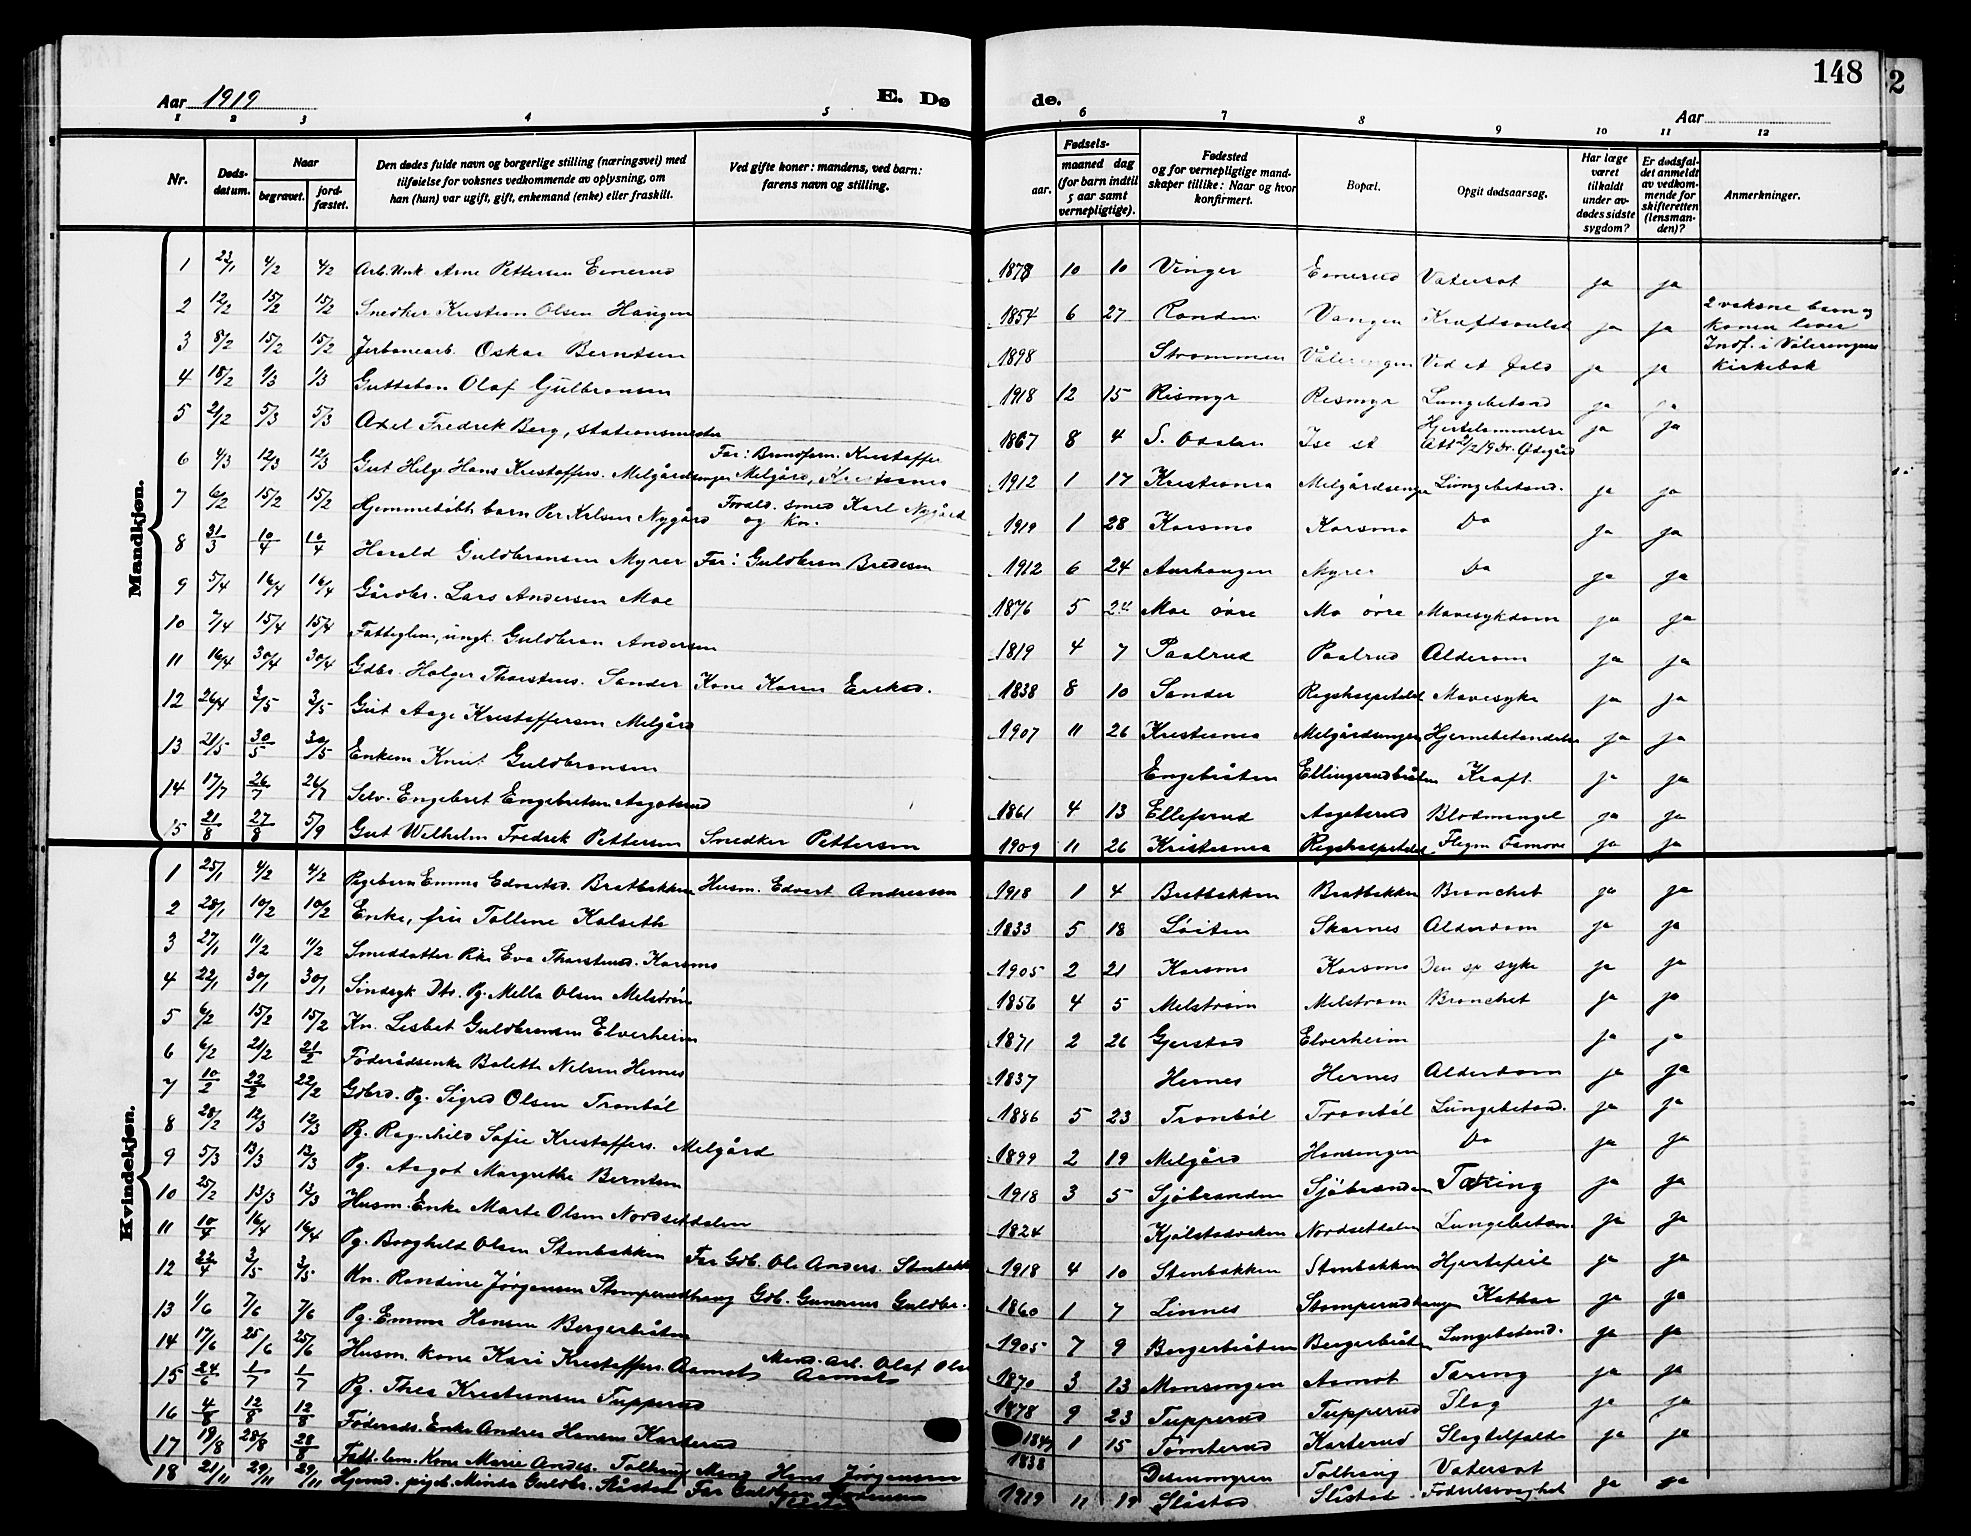 148
2
Aar 1919
E. Dø
de.
Aar
1 2 3 4 5 6 7 8 9 10 11 12
Nr.
Døds-
datum.
Naar
begravet.
jord-
fæstet.
Den dødes fulde navn og borgerlige stilling (næringsvei) med
tilføielse for voksnes vedkommende av oplysning, om
han (hun) var ugift, gift, enkemand (enke) eller fraskilt.
Ved gifte koner: mandens, ved barn:
farens navn og stilling.
Fødsels-
aar.
maaned dag
(for barn indtil
5 aar samt
vernepligtige).
Fødested
og for vernepligtige mand-
skaper tillike: Naar og hvor
konfirmert.
Bopæl.
Opgit dødsaarsag.
Har læge
været
tilkaldt
under av-
dødes sidste
sygdom?
Er dødsfal-
det anmeldt
av vedkom-
mende for
skifteretten
(lensman-
den)?
Anmerkninger.
Mandkjøn.
1 23/1 4/2 4/2 Arb. Unk Arne Pettersen 1878 10 10 Vinger Vatersot ja ja
2 12/2 15/2 15/2 Snedker Kristian Olsen Haugen 1854 6 27 Vangen Kraftsvulst ja ja 2 voksne barn og
konen lever
3 8/2 15/2 15/2 Jerbanearb. Oskar Berntsen 1898 Strømmen Vålerengen Ved et fald ja ja Indf. i Vålerengens
kirkebok
4 18/2 1/3 1/3 Guttebarn Olaf Gulbransen 1918 12 15 Rismyr Rismyr Lungebetend ja ja
5 21/2 5/3 5/3 Axel Fredrik Berg, stationsmester 1867 8 4 S. Odalen st Hjertelammelse ja ja
6 4/3 12/3 12/3 Gut Helge Hans Kristoffers. Melgårdsengen Far: Kristoffer
Melgård, Kristiania 1912 1 17 Kristiania Melgårdsengen Lungebetend. ja ja
7 6/2 15/2 15/2 Hjemmedøbt barn Per Karlsen Nygård Forald. smed Karl Nygård
og Kon. 1919 1 28 Korsmo Korsmo Do ja ja
8 31/3 10/4 10/4 Harald Guldbransen Myrer Far: Guldbran Bredesen 1912 6 24 Aurhaugen Myrer Do ja ja
9 5/4 16/4 16/4 Gårdbr. Lars Andersen Moe 1876 5 24 Moe øvre Mo øvre Mavesykdom ja ja
10 7/4 15/4 15/4 Fattiglem, ungk. Guldbran Andersen 1819 4 7 Paalrud Paalrud Alderdom ja ja
11 16/4 30/4 30/4 Gdbr. Holger Thorstens. Sander Kone Karen 1838 8 10 Sander Rigshospitalet Mavesyke ja ja
12 26/4 3/5 3/5 Gut Aage Kristoffersen Melgård 1907 11 26 Kristiania Melgårdsengen Hjernebetændelse ja ja
13 21/5 30/5 30/5 Enkem Knut Guldbransen Engebråten Ellingsrudbråten Kræft. ja ja
14 17/7 26/7 26/7 Selv. Engebret Engebretsen Aagotsrud 1861 4 13 Ellefsrud Blodmangel ja ja
15 21/8 27/8 5/9 Gut Wilhelm Fredrik Pettersen Snedker Pettersen 1909 11 26 Kristiania Rigshospitalet ja ja
Kvindekjøn.
1 25/1 4/2 4/2 Pigebarn Emma Edvartsd. Bratbakken Husm. Edvart Andreassen 1918 1 4 Bratbakken Bratbakken Bronchit ja ja
2 28/1 10/2 10/2 Enke, fru Tolline Kolseth 1833 5 18 Løiten Skarnes Alderdom ja ja
3 27/1 11/2 11/2 Smeddatter Pike Eva Thorstensd. Korsmo 1905 2 21 Korsmo Korsmo Den sp syke ja ja
4 22/1 30/1 30/1 Sindsyk Dtr. Pg. Mella Olsen Melstrøm 1856 4 5 Melstrøm Melstrøm Bronchit ja ja
5 6/2 15/2 15/2 Kn. Lisbet Guldbransen Elverheim 1871 2 26 Gjerstad Elverheim ja ja
6 6/2 21/2 21/2 Føderådsenke Bolette Nilsen Hernes 1837 Hernes Hernes Alderdom ja ja
7 10/2 22/2 22/2 Gdbrd. Pg. Sigrid Olsen Tronbøl 1886 5 23 Tronbøl Tronbøl Lungebetend. ja ja
8 28/2 12/3 12/3 Pg. Ragnhild Sofie Kristoffers. Melgård 1899 2 19 Melgård Do ja ja
9 5/3 13/3 13/3 Pg. Aagot Margrethe Berntsen 1918 3 5 Sjøbranden Sjøbranden Tæring ja ja
10 25/2 13/3 13/3 Husm. Enke Marte Olsen Nordsetdalen 1824 Nordsetdalen Lungebetæn. ja ja
11 10/4 16/4 16/4 Pg. Borghild Olsen Stenbakken Far Gdb. Ole Anders. Stenbakk 1918 4 10 Stenbakken Stenbakken Hjertefeil ja ja
12 22/4 3/5 3/5 Kn. Randine Jørgensen Stomperudhaug Gdb. Gunerius Guldbr. 1860 1 7 Linnes Stomperudhaugen ja ja
13 1/6 7/6 7/6 Pg. Emma Hansen Bergerbråten 1905 7 9 Bergerbråten Bergerbråten Lungebetend. ja ja
14 17/6 25/6 25/6 Husm. kone Kari Kristoffers. Aamot Mand. Arb. Olaf Ols
Aamot 1870 3 13 Monsengen Aamot Tæring ja ja
15 24/6 1/7 1/7 Pg. Thea Kristiansen Tupperud 1878 9 23 Tupperud Tupperud Slag ja ja
16 4/8 12/8 12/8 Føderåds. Enke Andrea Hansen Karterud 1 15 Tomterud Karterud Slagtilfælde ja ja
17 19/8 28/8 28/8 Fatt.lem. Kone Marie Anders. Tolhaug Mand Hans Jørgensen 1838 Tolhaug Vatersot
18 21/11 29/11 29/11 pigeb. Minda Guldbr. Slåstad Far Guldbran 1919 11 19 Slåstad ja ja